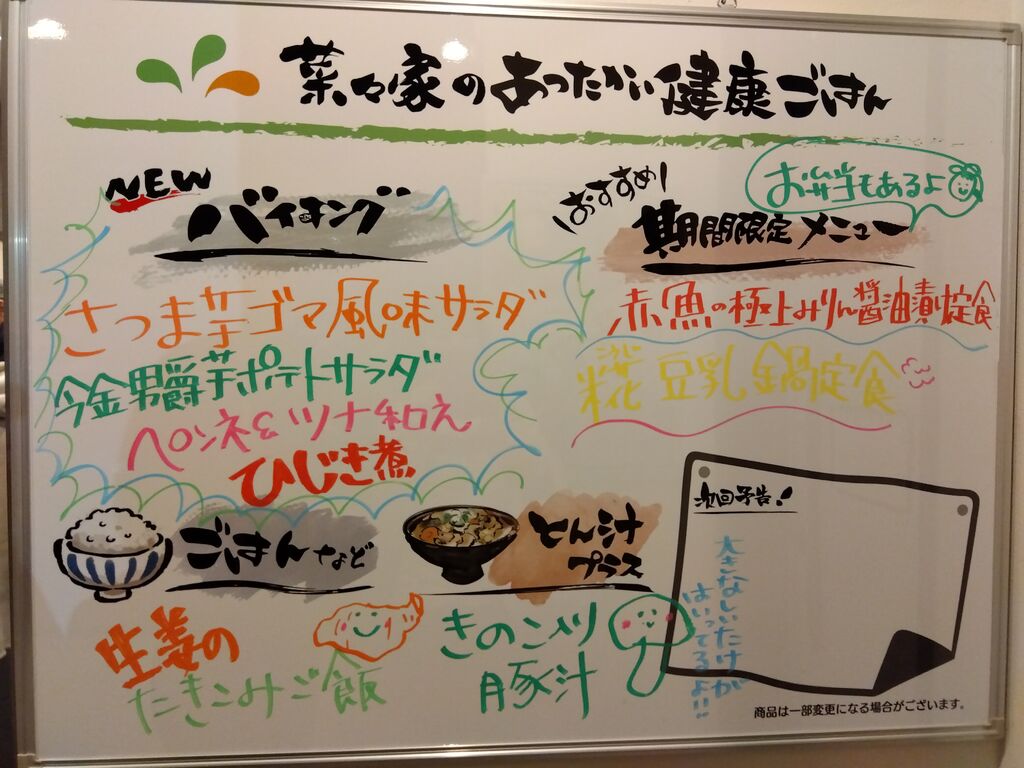 菜々家のあったかい健康ごはん
NEW
バイキング
さつま芋ゴマ風味サラダ
今金男爵芋ポテトサラダ
ペンネ&ツナ和え
ひじき煮
おすすめ!
お弁当もあるよ
期間限定メニュー
赤魚の極上みりん醤油漬定食
こうじ
糀豆乳鍋定食
ごはんなど
生姜の
たきこみご飯
とん汁
プラス
きのこ入り
豚汁
次回予告!
大きなしいたけが
はいってるよ!!
商品は一部変更になる場合がございます。